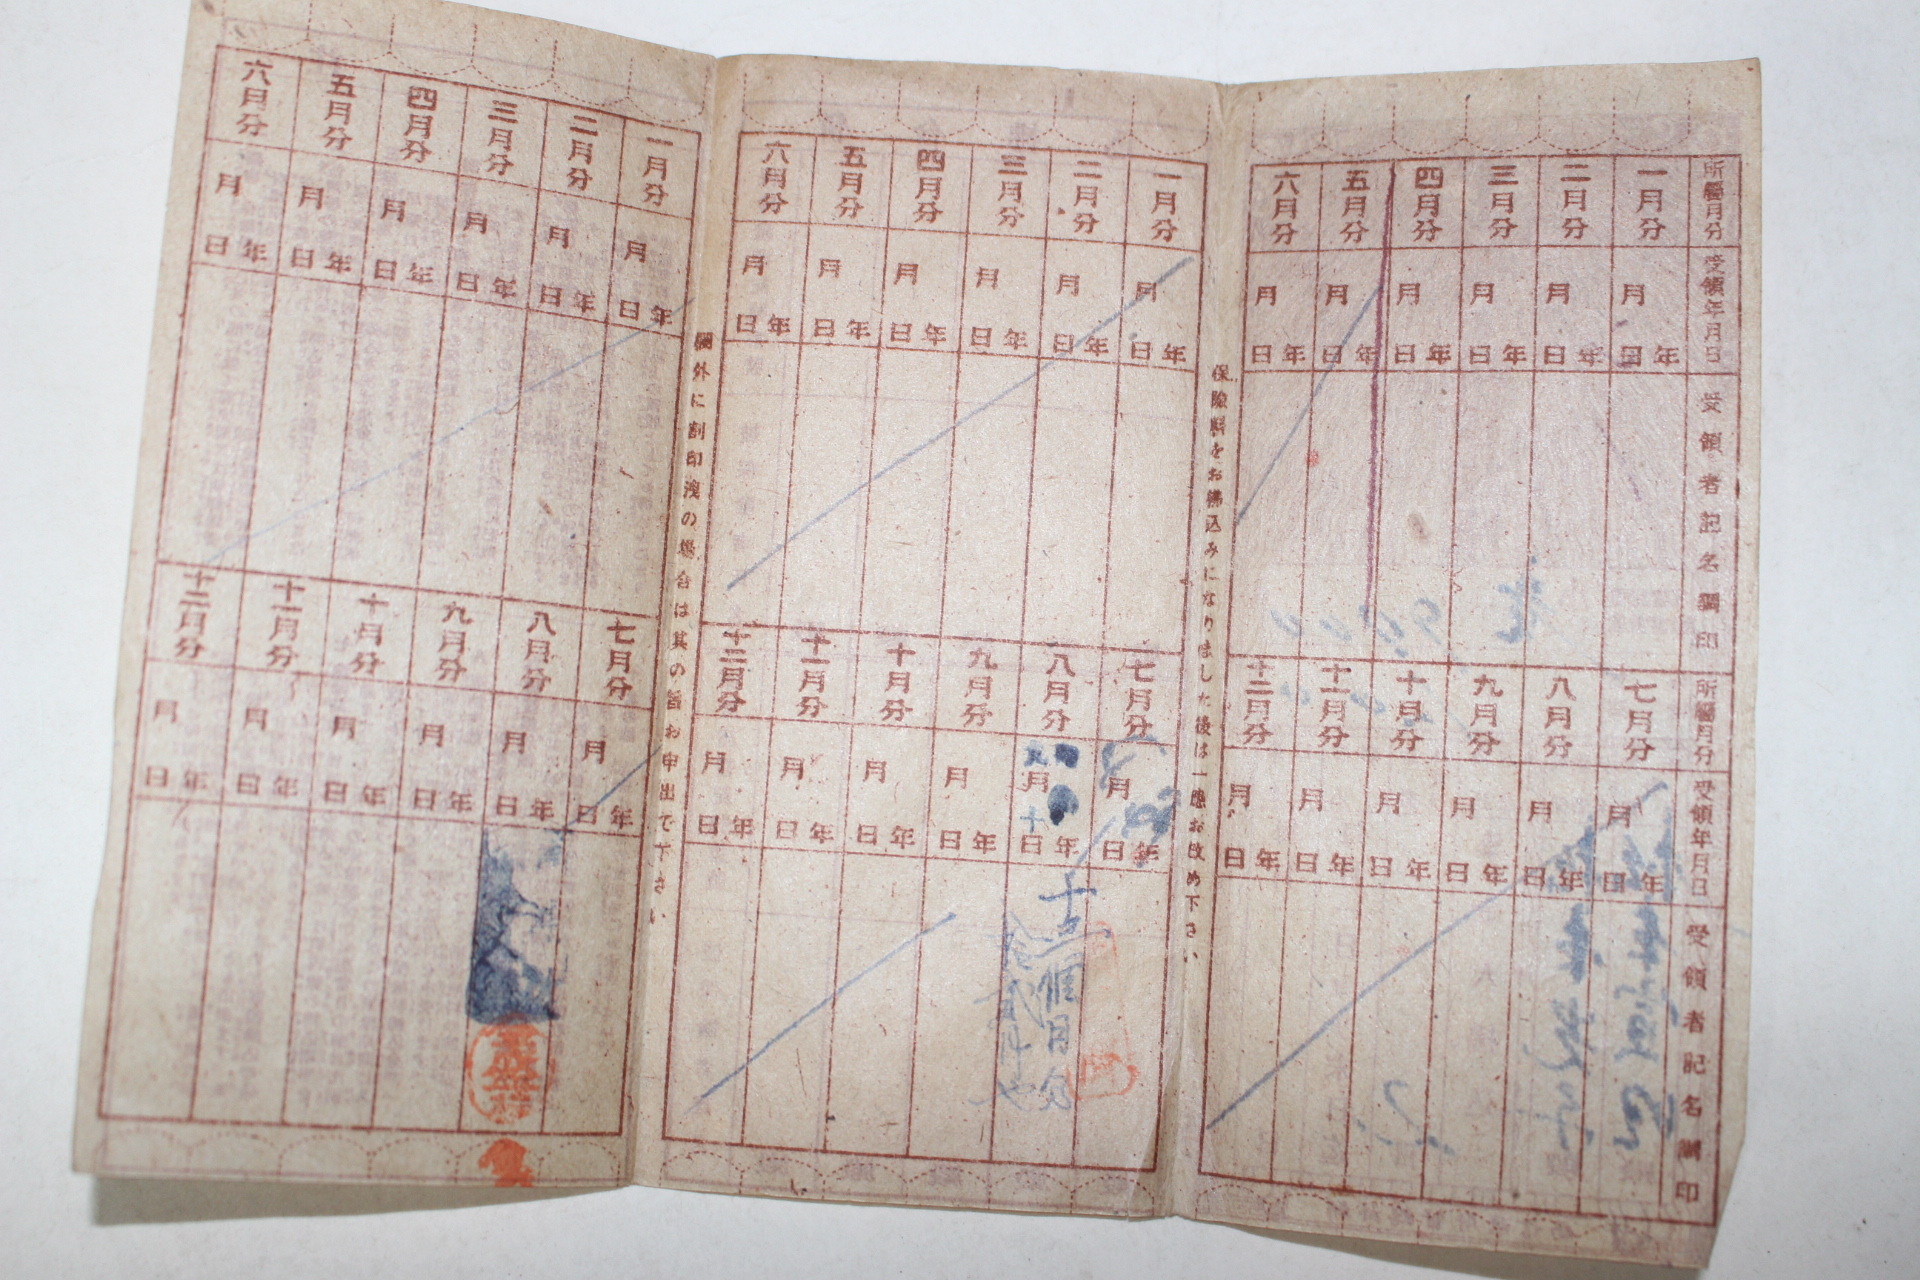 所屬月分
一月分
二月分
三月分
四月分
五月分
六月分
受領年月日
年月日
年月日
年月日
年月日
年月日
年月日
受領者記名調印
所屬月分
七月分
八月分
九月分
十月分
十一月分
十二月分
受領年月日
年月日
年月日
年月日
年月日
年月日
年月日
受領者記名調印
保險料をお拂込みになりました後は一應お改め下さい
一月分
二月分
三月分
四月分
五月分
六月分
年月日
年月日
年月日
年月日
年月日
年月日
七月分
八月分
九月分
十月分
十一月分
十二月分
年月日
年月日
年月日
年月日
年月日
年月日
欄外に割印洩の場合は其の旨お申出で下さい
一月分
二月分
三月分
四月分
五月分
六月分
年月日
年月日
年月日
年月日
年月日
年月日
七月分
八月分
九月分
十月分
十一月分
十二月分
年月日
年月日
年月日
年月日
年月日
年月日